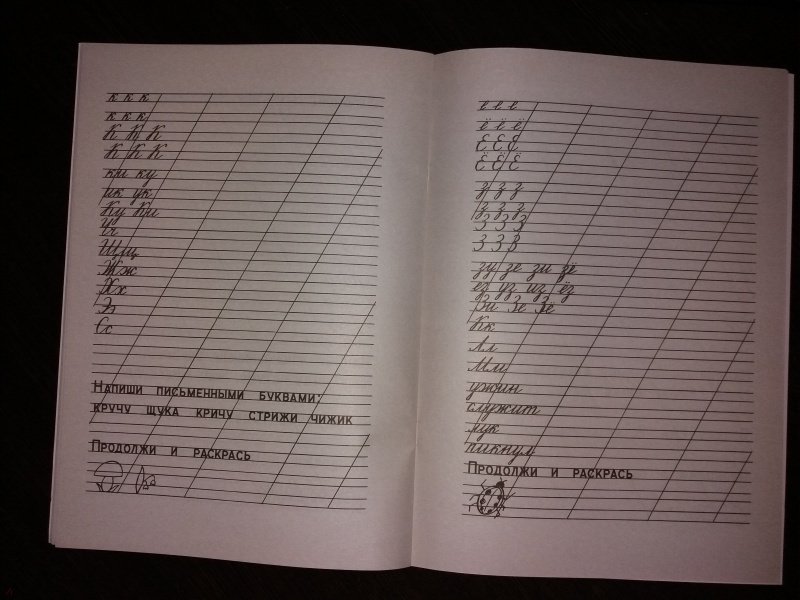 к к к
к к к
К К К
К К К
ки ку
ик ук
Ку Ки
Чч
Щщ
Жж
Хх
Ээ
Сс
Напиши письменными буквами:
кручу щука кричу стрижи чижик
Продолжи и раскрась
е е е
ё ё ё
Е Е Е
Ё Ё Ё
з з з
з з з
З З З
З З З
зу зе зи зё
ез уз из ёз
Зи Зе Зё
Кк
Лл
Мм
ужин
служит
лук
пикнул
Продолжи и раскрась